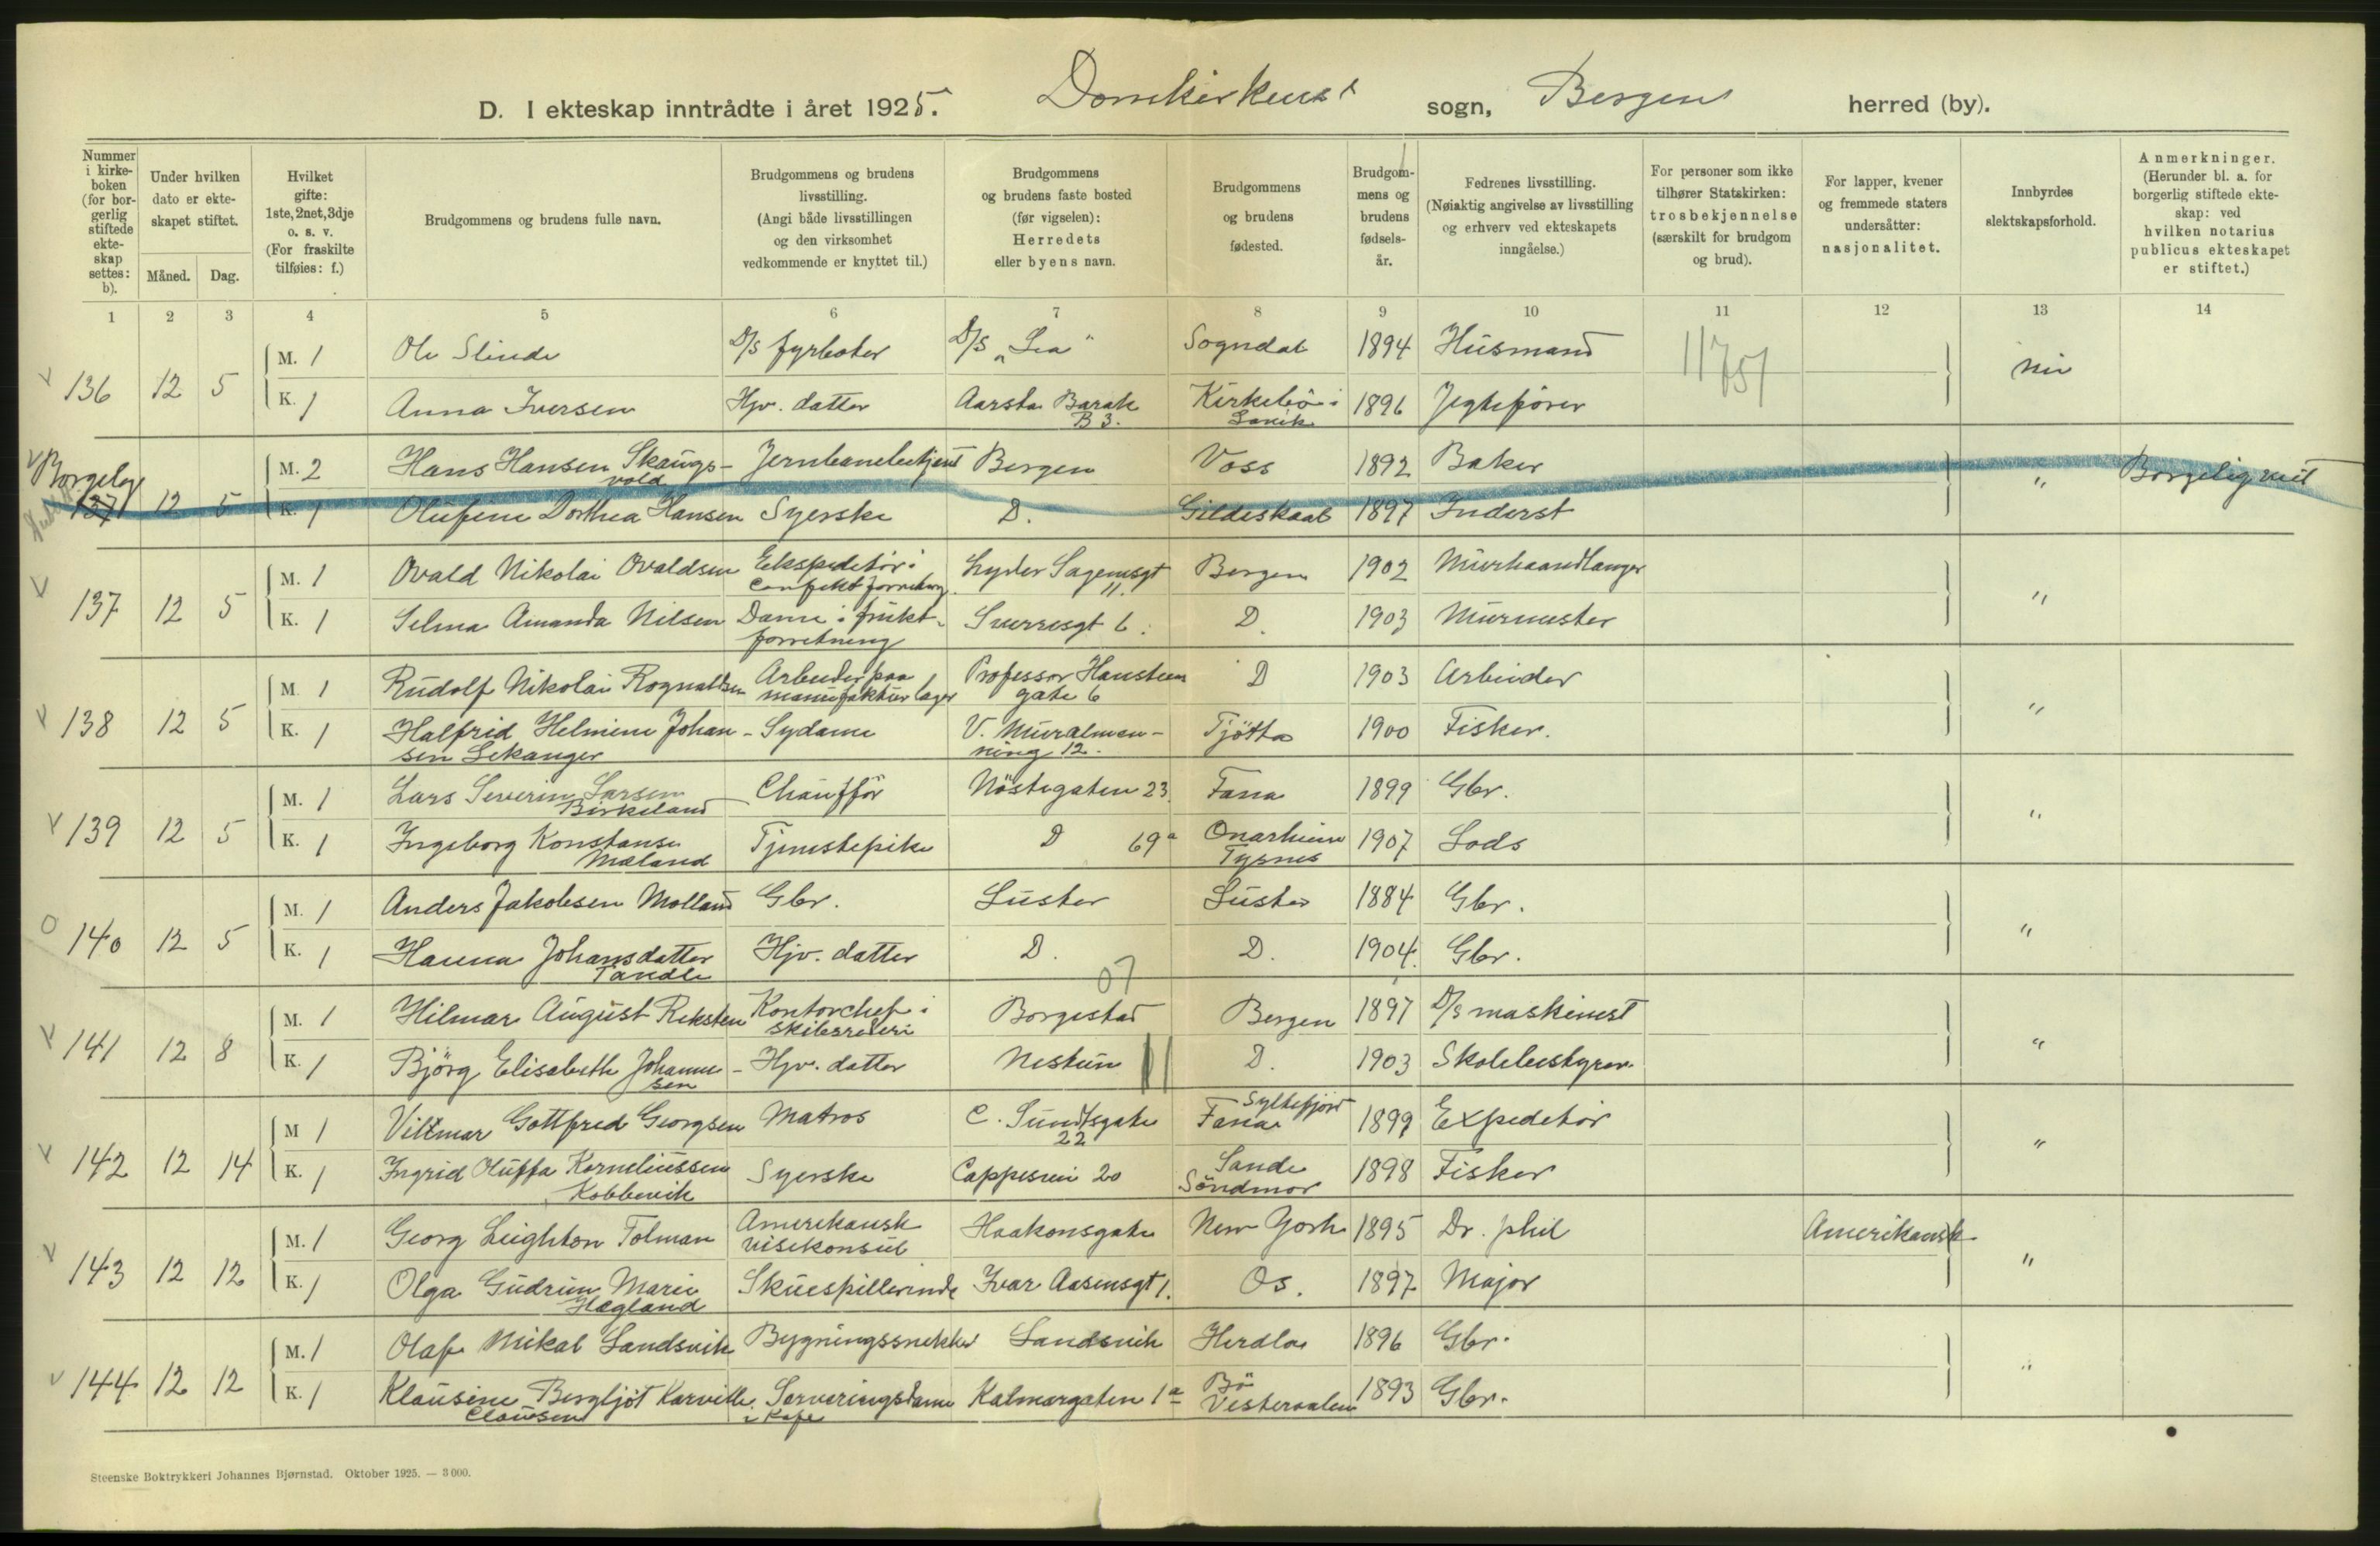 D. I ekteskap inntrådte i året 1925. Domkirkens sogn, Bergens herred (by).
Nummer i kirke-boken (for bor-gerlig stiftede ekte-skap settes: b).
Under hvilken dato er ekte-skapet stiftet.
Måned. Dag.
Hvilket gifte: 1ste, 2net, 3dje o. s. v. (For fraskilte tilføies: f.)
Brudgommens og brudens fulle navn.
Brudgommens og brudens livsstilling. (Angi både livsstillingen og den virksomhet vedkommende er knyttet til.)
Brudgommens og brudens faste bosted (før vigselen): Herredets eller byens navn.
Brudgommens og brudens fødested.
Brudgom-mens og brudens fødsels-år.
Fedrenes livsstilling. (Nøiaktig angivelse av livsstilling og erhverv ved ekteskapets inngåelse.)
For personer som ikke tilhører Statskirken: trosbekjennelse (særskilt for brudgom og brud).
For lapper, kvener og fremmede staters undersåtter: nasjonalitet.
Innbyrdes slektskapsforhold.
Anmerkninger. (Herunder bl. a. for borgerlig stiftede ekte-skap: ved hvilken notarius publicus ekteskapet er stiftet.)
1 2 3 4 5 6 7 8 9 10 11 12 13 14
M. 1 Ole Slinde D/S fyrbøter D/S „Lea" Sogndal 1894 Husmand
v 136 12 5 nei
K. 1 Anna Iversen Hjv. datter Aarsta Barak B 3. Kirkebö i Lavik 1896 Jegtefører
11751
v Borgelig
M. 2 Hans Hansen Skaugs-vold Jernbanebetjent Bergen Voss 1892 Baker
137 12 5 " Borgelig viet
K. 1 Olufine Dorthea Hansen Syerske D. Gildeskaal 1897 Inderst
M. 1 Ovald Nikolai Ovaldsen Ekspeditör i Confekt forretng. Lyder Sagensgt 11. Bergen 1902 Murhaandlanger
v 137 12 5 "
K. 1 Selma Amanda Nilsen Dame i frukt-forretning Sverresgt 6. D. 1903 Murmester
M. 1 Rudolf Nikolai Rognaldsen Arbeider paa manufakturlager Professor Hansteens gate 6 D 1903 Arbeider
v 138 12 5 "
K. 1 Halfrid Helmine Johan-sen Lekanger Sydame V. Muralmen-ning 12. Tjötta 1900 Fisker.
M. 1 Lars Severin Larsen Birkeland Chauffför Nöstegaten 23. Fana 1899 Gbr.
v 139 12 5 "
K. 1 Ingeborg Konstanse Mæland Tjenestepike D 69a Onarheim Tysnes 1907 Lods
M. 1 Anders Jakobsen Molland Gbr. Luster Luster 1884 Gbr.
o 140 12 5 "
K. 1 Hanna Johansdatter Tandle Hjv. datter D. D. 1904. Gbr.
07
M. 1 Hilmar August Reksten Kontorchef i skibsrederi Borgestad Bergen 1897 D/S maskinist
v 141 12 8 "
K. 1 Björg Elisabeth Johanne-sen Hjv. datter Nestun D. 1903 Skolebestyrer.
M 1 Viltmar Gottfred Georgsen Matros C. Sundtsgate 22 Syltefjord Fana 1899 Expeditör
v 142 12 14 "
K. 1 Ingrid Oluffa Korneliussen Kobbevik Syerske Cappesvei 20 Sande Söndmör 1898 Fisker
M. 1 Georg Leighton Tolman Amerikansk visekonsul Haakonsgate New York 1895 Dr. phil Amerikansk
v 143 12 12 "
K. 1 Olga Gudrun Marie Hagland Skuespillerinde Ivar Aasensgt 1. Os. 1897 Major
M. 1 Olaf Mikal Landsvik Bygningssnekker Landsvik Herdla 1896 Gbr.
v 144 12 12 "
K. 1 Klausine Bergljot Karville Clausen Serveringsdame i Kafe Kalmargaten 1a Bö Vesteraalen 1893 Gbr.
Steenske Boktrykkeri Johannes Bjørnstad. Oktober 1925. — 3 000.